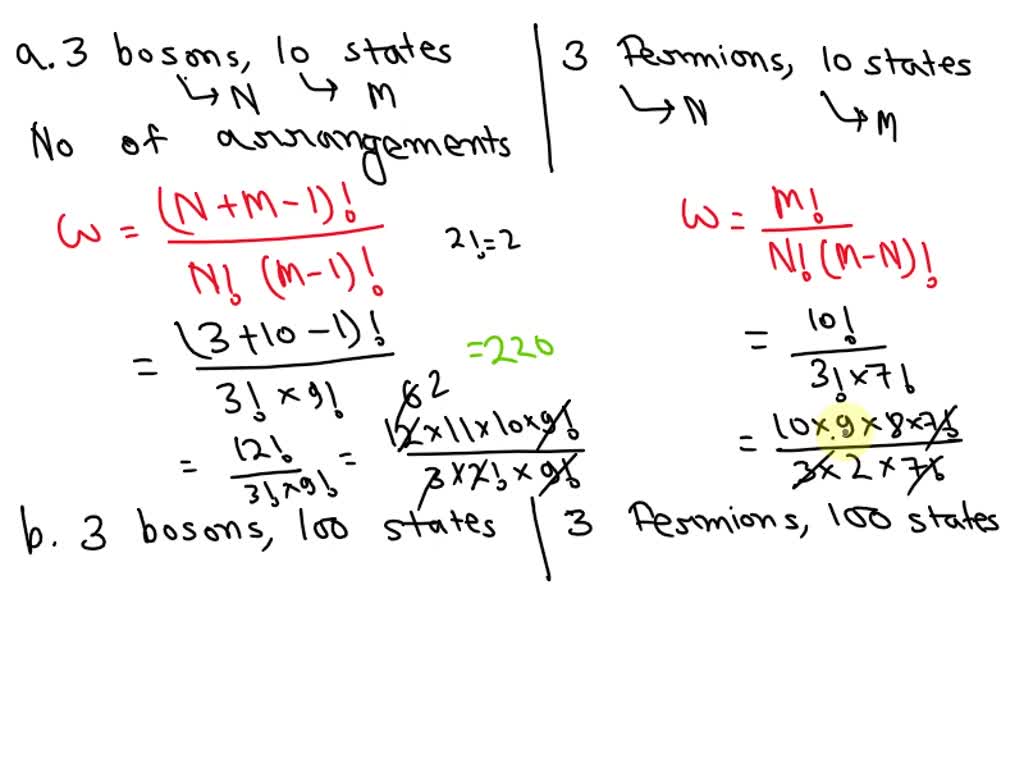 a. 3 bosons, 10 states
↳ N ↳ M
No of arrangements
ω = (N+M-1)! / N! (M-1)!
2! = 2
= (3+10-1)! / 3! × 9!
= 220
= 12! / 3! × 9! = 12 × 11 × 10 × 9! / 3 × 2! × 9!
6 2
3 Fermions, 10 states
↳ N ↳ M
ω = M! / N! (M-N)!
= 10! / 3! × 7!
= 10 × 9 × 8 × 7! / 3 × 2 × 7!
b. 3 bosons, 100 states
3 Fermions, 100 states